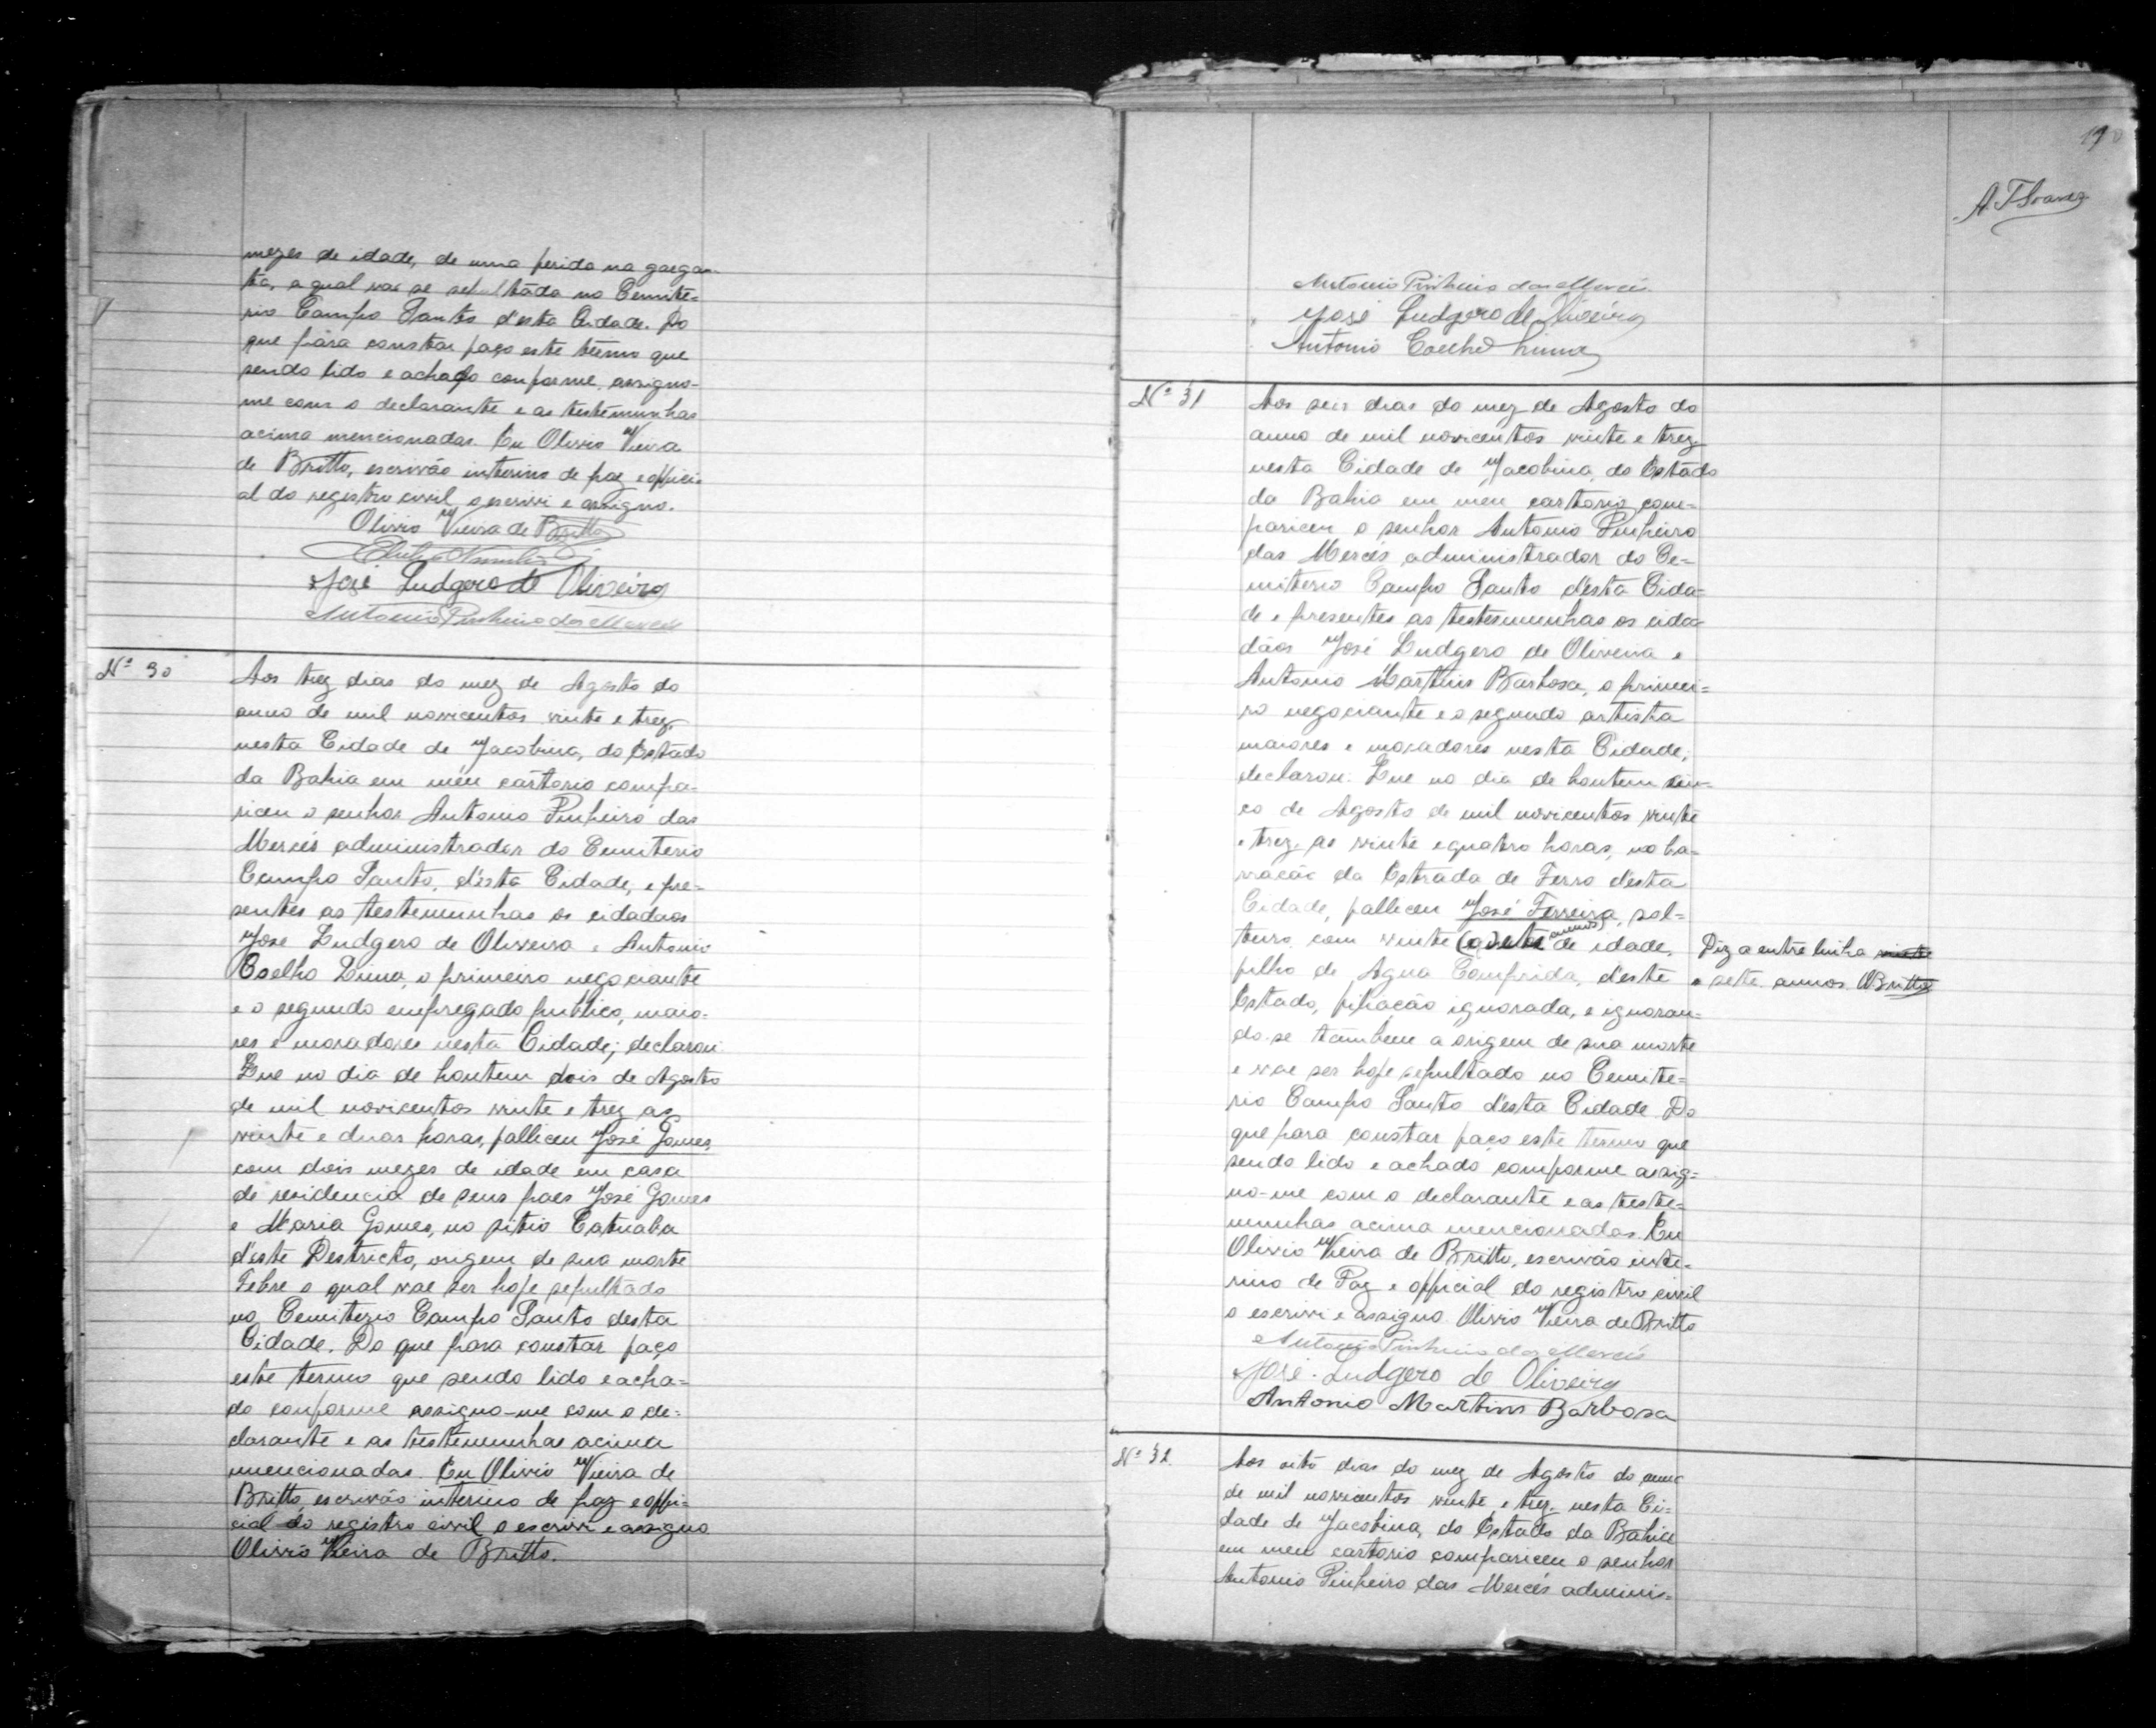 mezes de idade, de uma ferida na gargan-
ta, a qual vae se sepultada no Cemite-
rio Campo Santo d'esta Cidade. Do
que para constar faço este termo que
sendo lido e achado conforme, assigno-
me com o declarante e as testemunhas
acima mencionadas. Eu Olivio Vieira
de Britto, escrivão interino de paz e offici-
al do registro civil o escrivi e assigno.
Olivio Vieira de Britto
José Ludgero de Oliveira
Antonio Pinheiro das Mercês
Nº 30
Aos trez dias do mez de Agosto do
anno de mil novicentos vinte e trez,
nesta Cidade de Jacobina, do Estado
da Bahia em meu cartorio compa-
riceu o senhor Antonio Pinheiro das
Mercês administrador do Cemiterio
Campo Santo, d'esta Cidade, e pre-
sentes as testemunhas os cidadãos
José Ludgero de Oliveira e Antonio
Coelho Lima, o primeiro negociante
e o segundo empregado publico, maio-
res e moradores nesta Cidade; declarou:
Que no dia de hontem dois de Agosto
de mil novicentos vinte e trez as
vinte e duas horas, falliceu José Gomes,
com dois mezes de idade em casa
de residencia de seus paes José Gomes
e Maria Gomes, no sitio Catuaba
d'este Destricto, origem de sua morte
Febre o qual vae ser hoje sepultado
no Cemiterio Campo Santo desta
Cidade. Do que para constar faço
este termo que sendo lido e acha-
do conforme assigno-me com o de-
clarante e as testemunhas acima
mencionadas. Eu Olivio Vieira de
Britto, escrivão interino de paz e offi-
cial do registro civil o escrivi e assigno
Olivio Vieira de Britto.
190
Antonio Pinheiro das Mercês
José Ludgero de Oliveira
Antonio Coelho Lima
Nº 31
Aos seis dias do mez de Agosto do
anno de mil novicentos vinte e trez
nesta Cidade de Jacobina, do Estado
da Bahia em meu cartorio com-
pariceu o senhor Antonio Pinheiro
das Mercês administrador do Ce-
miterio Campo Santo d'esta Cida-
de e presentes as testesmunhas os cida-
dãos José Ludgero de Oliveira e
Antonio Marthins Barbosa, o primei-
ro negociante e o segundo artista
maiores e moradores nesta Cidade,
declarou: Que no dia de hontem cin-
co de Agosto de mil novicentos vinte
e trez, as vinte e quatro horas, no ba-
rracão da Estrada de Ferro d'esta
Cidade, falliceu José Ferreira, sol-
teiro, com vinte (e) sete annos de idade,
filho de Agua Comprida, d'este
Estado, filiação ignorada, e ignoran-
do-se tambem a origem de sua morte
e vae ser hoje sepultado no Cemite-
rio Campo Santo d'esta Cidade. Do
que para constar faço este termo que
sendo lido e achado comforme assig-
no-me com o declarante e as teste-
munhas acima mencionadas. Eu
Olivio Vieira de Britto, escrivão inte-
rino de Paz e official do registro civil
o escrivi e assigno Olivio Vieira de Britto
Antonio Pinheiro das Mercês
José Ludgero de Oliveira
Antonio Martins Barbosa
Diz a entre linha vinte
e sete annos. OBritto
Nº 32
Aos oito dias do mez de Agosto do anno
de mil novicentos vinte e trez, nesta Ci-
dade de Jacobina, do Estado da Bahia
em meu cartorio compariceu o senhor
Antonio Pinheiro das Mercês adminis-